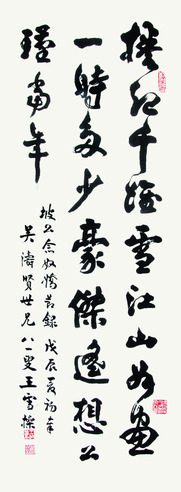 捲起千堆雪江山如畫
一時多少豪傑遙想公
瑾當年
坡公念奴嬌節錄 戊辰夏初
吳濤賢世兄 八一叟王雪